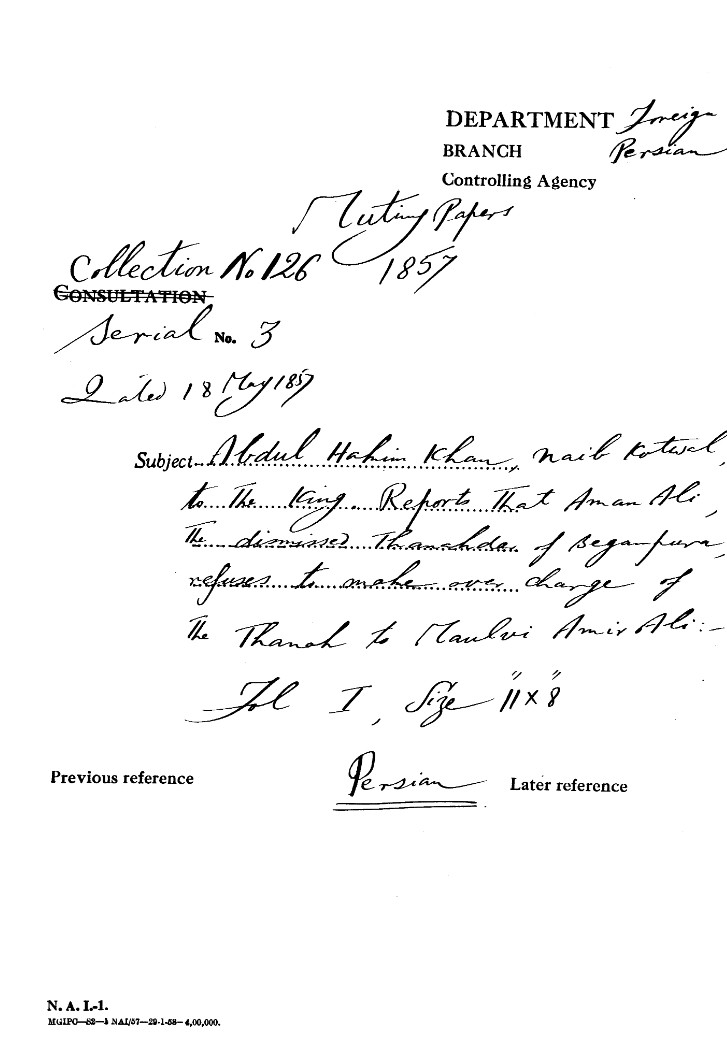 DEPARTMENT Foreign
BRANCH Persian
Controlling Agency
Mutiny Papers
Collection No 126 1857
CONSULTATION
Serial No. 3
Dated 18 May 1857
Subject Abdul Hakim Khan, Naib Kotwal,
to The King. Reports That Aman Ali,
The dismissed Thanahdar of Begampura,
refuses to make over charge of
The Thanah to Maulvi Amir Ali:-
Fol I, Size 11" x 8"
Previous reference Persian Later reference
N. A. I.-1.
MGIPC—S2—3 NAI/57—29-1-58—4,00,000.